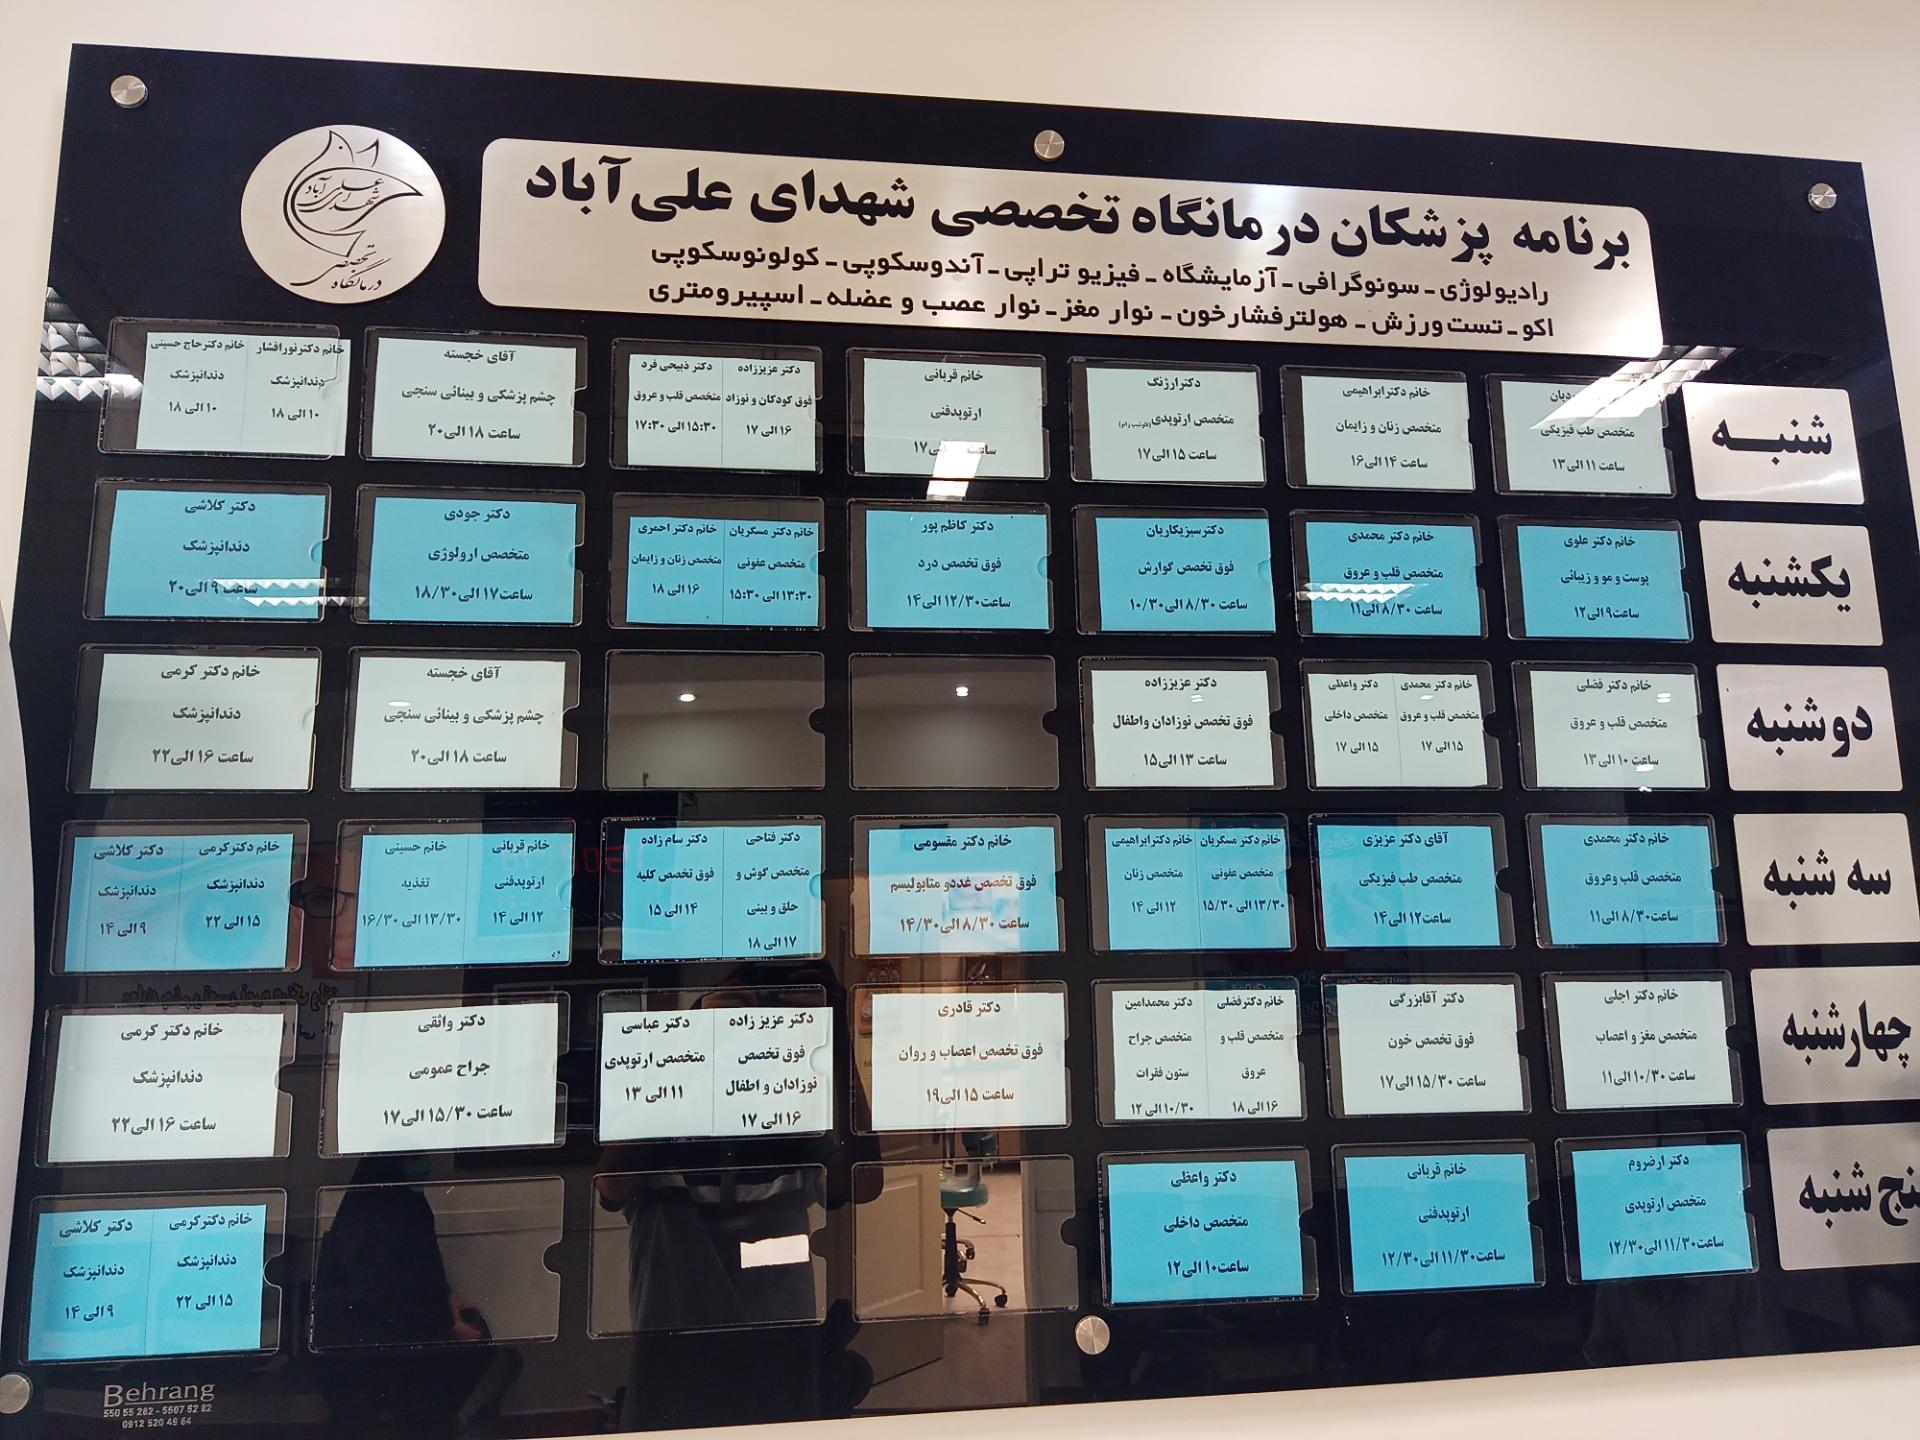 برنامه پزشکان درمانگاه تخصصی شهدای علی‌آباد
رادیولوژی ـ سونوگرافی ـ آزمایشگاه ـ فیزیوتراپی ـ آندوسکوپی ـ کولونوسکوپی
اکو ـ تست ورزش ـ هولترفشارخون ـ نوار مغز ـ نوار عصب و عضله ـ اسپیرومتری
شهدای علی‌آباد
درمانگاه تخصصی
شنبه
متخصص طب فیزیکی
ساعت ۱۱ الی ۱۳
خانم دکتر ابراهیمی
متخصص زنان و زایمان
ساعت ۱۴ الی ۱۶
دکتر ارژنگ
متخصص ارتوپدی
ساعت ۱۵ الی ۱۷
خانم قربانی
ارتوپدفنی
ساعت الی ۱۷
دکتر عزیززاده
فوق کودکان و نوزاد
۱۶ الی ۱۷
دکتر ذبیحی فرد
متخصص قلب و عروق
۱۵:۳۰ الی ۱۷:۳۰
آقای خجسته
چشم پزشکی و بینائی سنجی
ساعت ۱۸ الی ۲۰
خانم دکتر نورافشار
دندانپزشک
۱۰ الی ۱۸
خانم دکتر حاج حسینی
دندانپزشک
۱۰ الی ۱۸
یکشنبه
خانم دکتر علوی
پوست و مو و زیبائی
ساعت ۹ الی ۱۲
خانم دکتر محمدی
متخصص قلب و عروق
ساعت ۸/۳۰ الی ۱۱
دکتر سبزیکاریان
فوق تخصص گوارش
ساعت ۸/۳۰ الی ۱۰/۳۰
دکتر کاظم پور
فوق تخصص درد
ساعت ۱۲/۳۰ الی ۱۴
خانم دکتر مسگریان
متخصص عفونی
۱۳:۳۰ الی ۱۵:۳۰
خانم دکتر احمری
متخصص زنان و زایمان
۱۶ الی ۱۸
دکتر جودی
متخصص ارولوژی
ساعت ۱۷ الی ۱۸/۳۰
دکتر کلاشی
دندانپزشک
ساعت ۹ الی ۲۰
دوشنبه
خانم دکتر فضلی
متخصص قلب و عروق
ساعت ۱۰ الی ۱۳
خانم دکتر محمدی
متخصص قلب و عروق
۱۵ الی ۱۷
دکتر واعظی
متخصص داخلی
۱۵ الی ۱۷
دکتر عزیززاده
فوق تخصص نوزادان واطفال
ساعت ۱۳ الی ۱۵
آقای خجسته
چشم پزشکی و بینائی سنجی
ساعت ۱۸ الی ۲۰
خانم دکتر کرمی
دندانپزشک
ساعت ۱۶ الی ۲۲
سه شنبه
خانم دکتر محمدی
متخصص قلب وعروق
ساعت ۸/۳۰ الی ۱۱
آقای دکتر عزیزی
متخصص طب فیزیکی
ساعت ۱۲ الی ۱۴
خانم دکتر مسگریان
متخصص عفونی
۱۳/۳۰ الی ۱۵/۳۰
خانم دکتر ابراهیمی
متخصص زنان
۱۲ الی ۱۴
خانم دکتر مقسومی
فوق تخصص غددو متابولیسم
ساعت ۸/۳۰ الی ۱۴/۳۰
دکتر فتاحی
متخصص گوش و
حلق و بینی
۱۷ الی ۱۸
دکتر سام زاده
فوق تخصص کلیه
۱۴ الی ۱۵
خانم قربانی
ارتوپدفنی
۱۲ الی ۱۴
خانم حسینی
تغذیه
۱۳/۳۰ الی ۱۶/۳۰
خانم دکتر کرمی
دندانپزشک
۱۵ الی ۲۲
دکتر کلاشی
دندانپزشک
۹ الی ۱۴
چهارشنبه
خانم دکتر اجلی
متخصص مغز و اعصاب
ساعت ۱۰/۳۰ الی ۱۱
دکتر آقابزرگی
فوق تخصص خون
ساعت ۱۵/۳۰ الی ۱۷
خانم دکتر فضلی
متخصص قلب و
عروق
۱۶ الی ۱۸
دکتر محمدامین
متخصص جراح
ستون فقرات
۱۰/۳۰ الی ۱۲
دکتر قادری
فوق تخصص اعصاب و روان
ساعت ۱۵ الی ۱۹
دکتر عزیز زاده
فوق تخصص
نوزادان و اطفال
۱۶ الی ۱۷
دکتر عباسی
متخصص ارتوپدی
۱۱ الی ۱۳
دکتر واثقی
جراح عمومی
ساعت ۱۵/۳۰ الی ۱۷
خانم دکتر کرمی
دندانپزشک
ساعت ۱۶ الی ۲۲
نج شنبه
دکتر ارضروم
متخصص ارتوپدی
ساعت ۱۱/۳۰ الی ۱۲/۳۰
خانم قربانی
ارتوپدفنی
ساعت ۱۱/۳۰ الی ۱۲/۳۰
دکتر واعظی
متخصص داخلی
ساعت ۱۰ الی ۱۲
خانم دکتر کرمی
دندانپزشک
۱۵ الی ۲۲
دکتر کلاشی
دندانپزشک
۹ الی ۱۴
Behrang
550 55 282 - 5507 52 82
0912 520 49 64